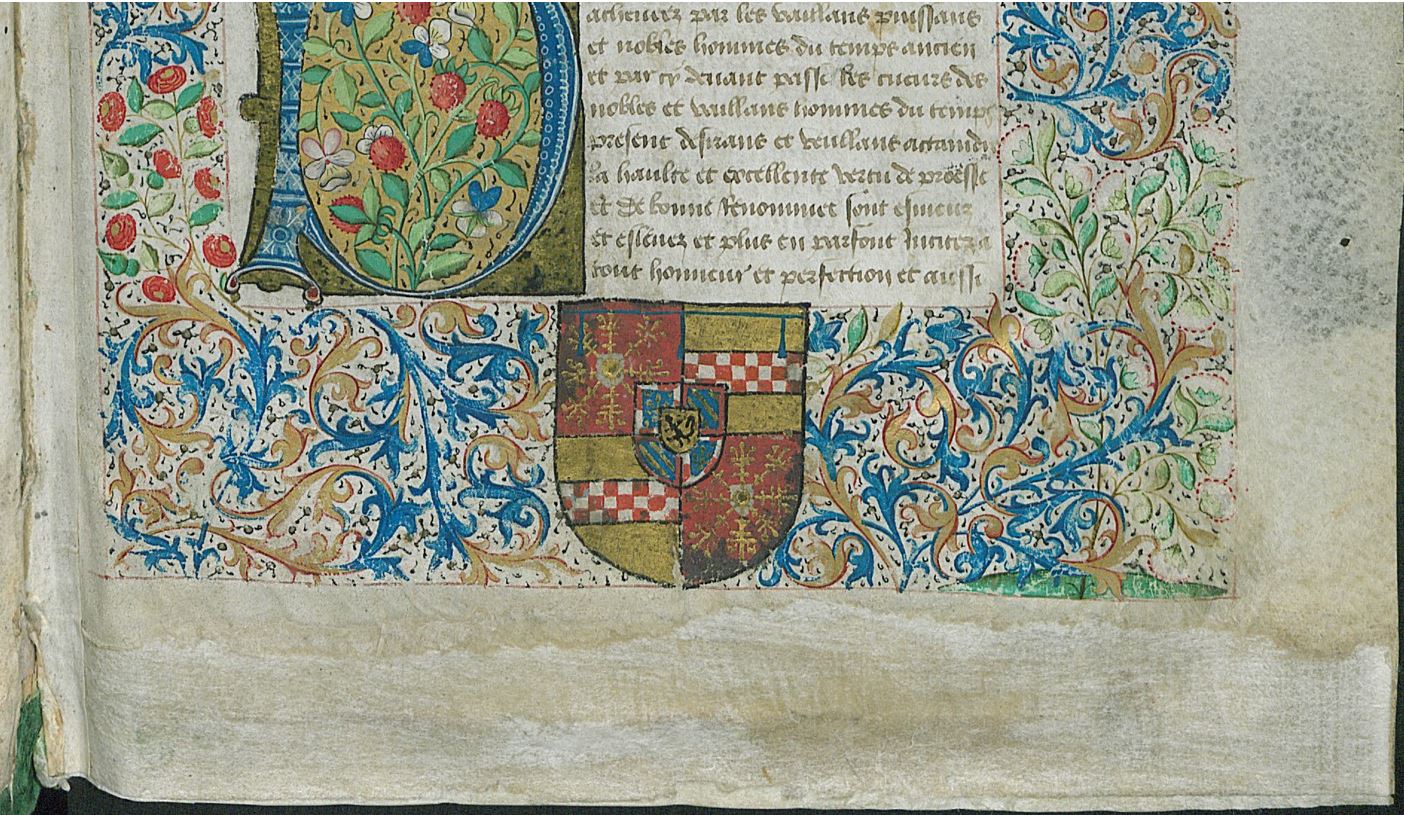 achevez par les vaillans puissans
et nobles hommes du temps ancien
et par cy devant passe les cueurs des
nobles et vaillans hommes du temps
present desirans et veullans actaindre
la haulte et excellente vertu de proësse
et de bonne Renommee sont esmeuz
et eslevez et plus en parfont Incitez a
tout honneur et perfection et aussi